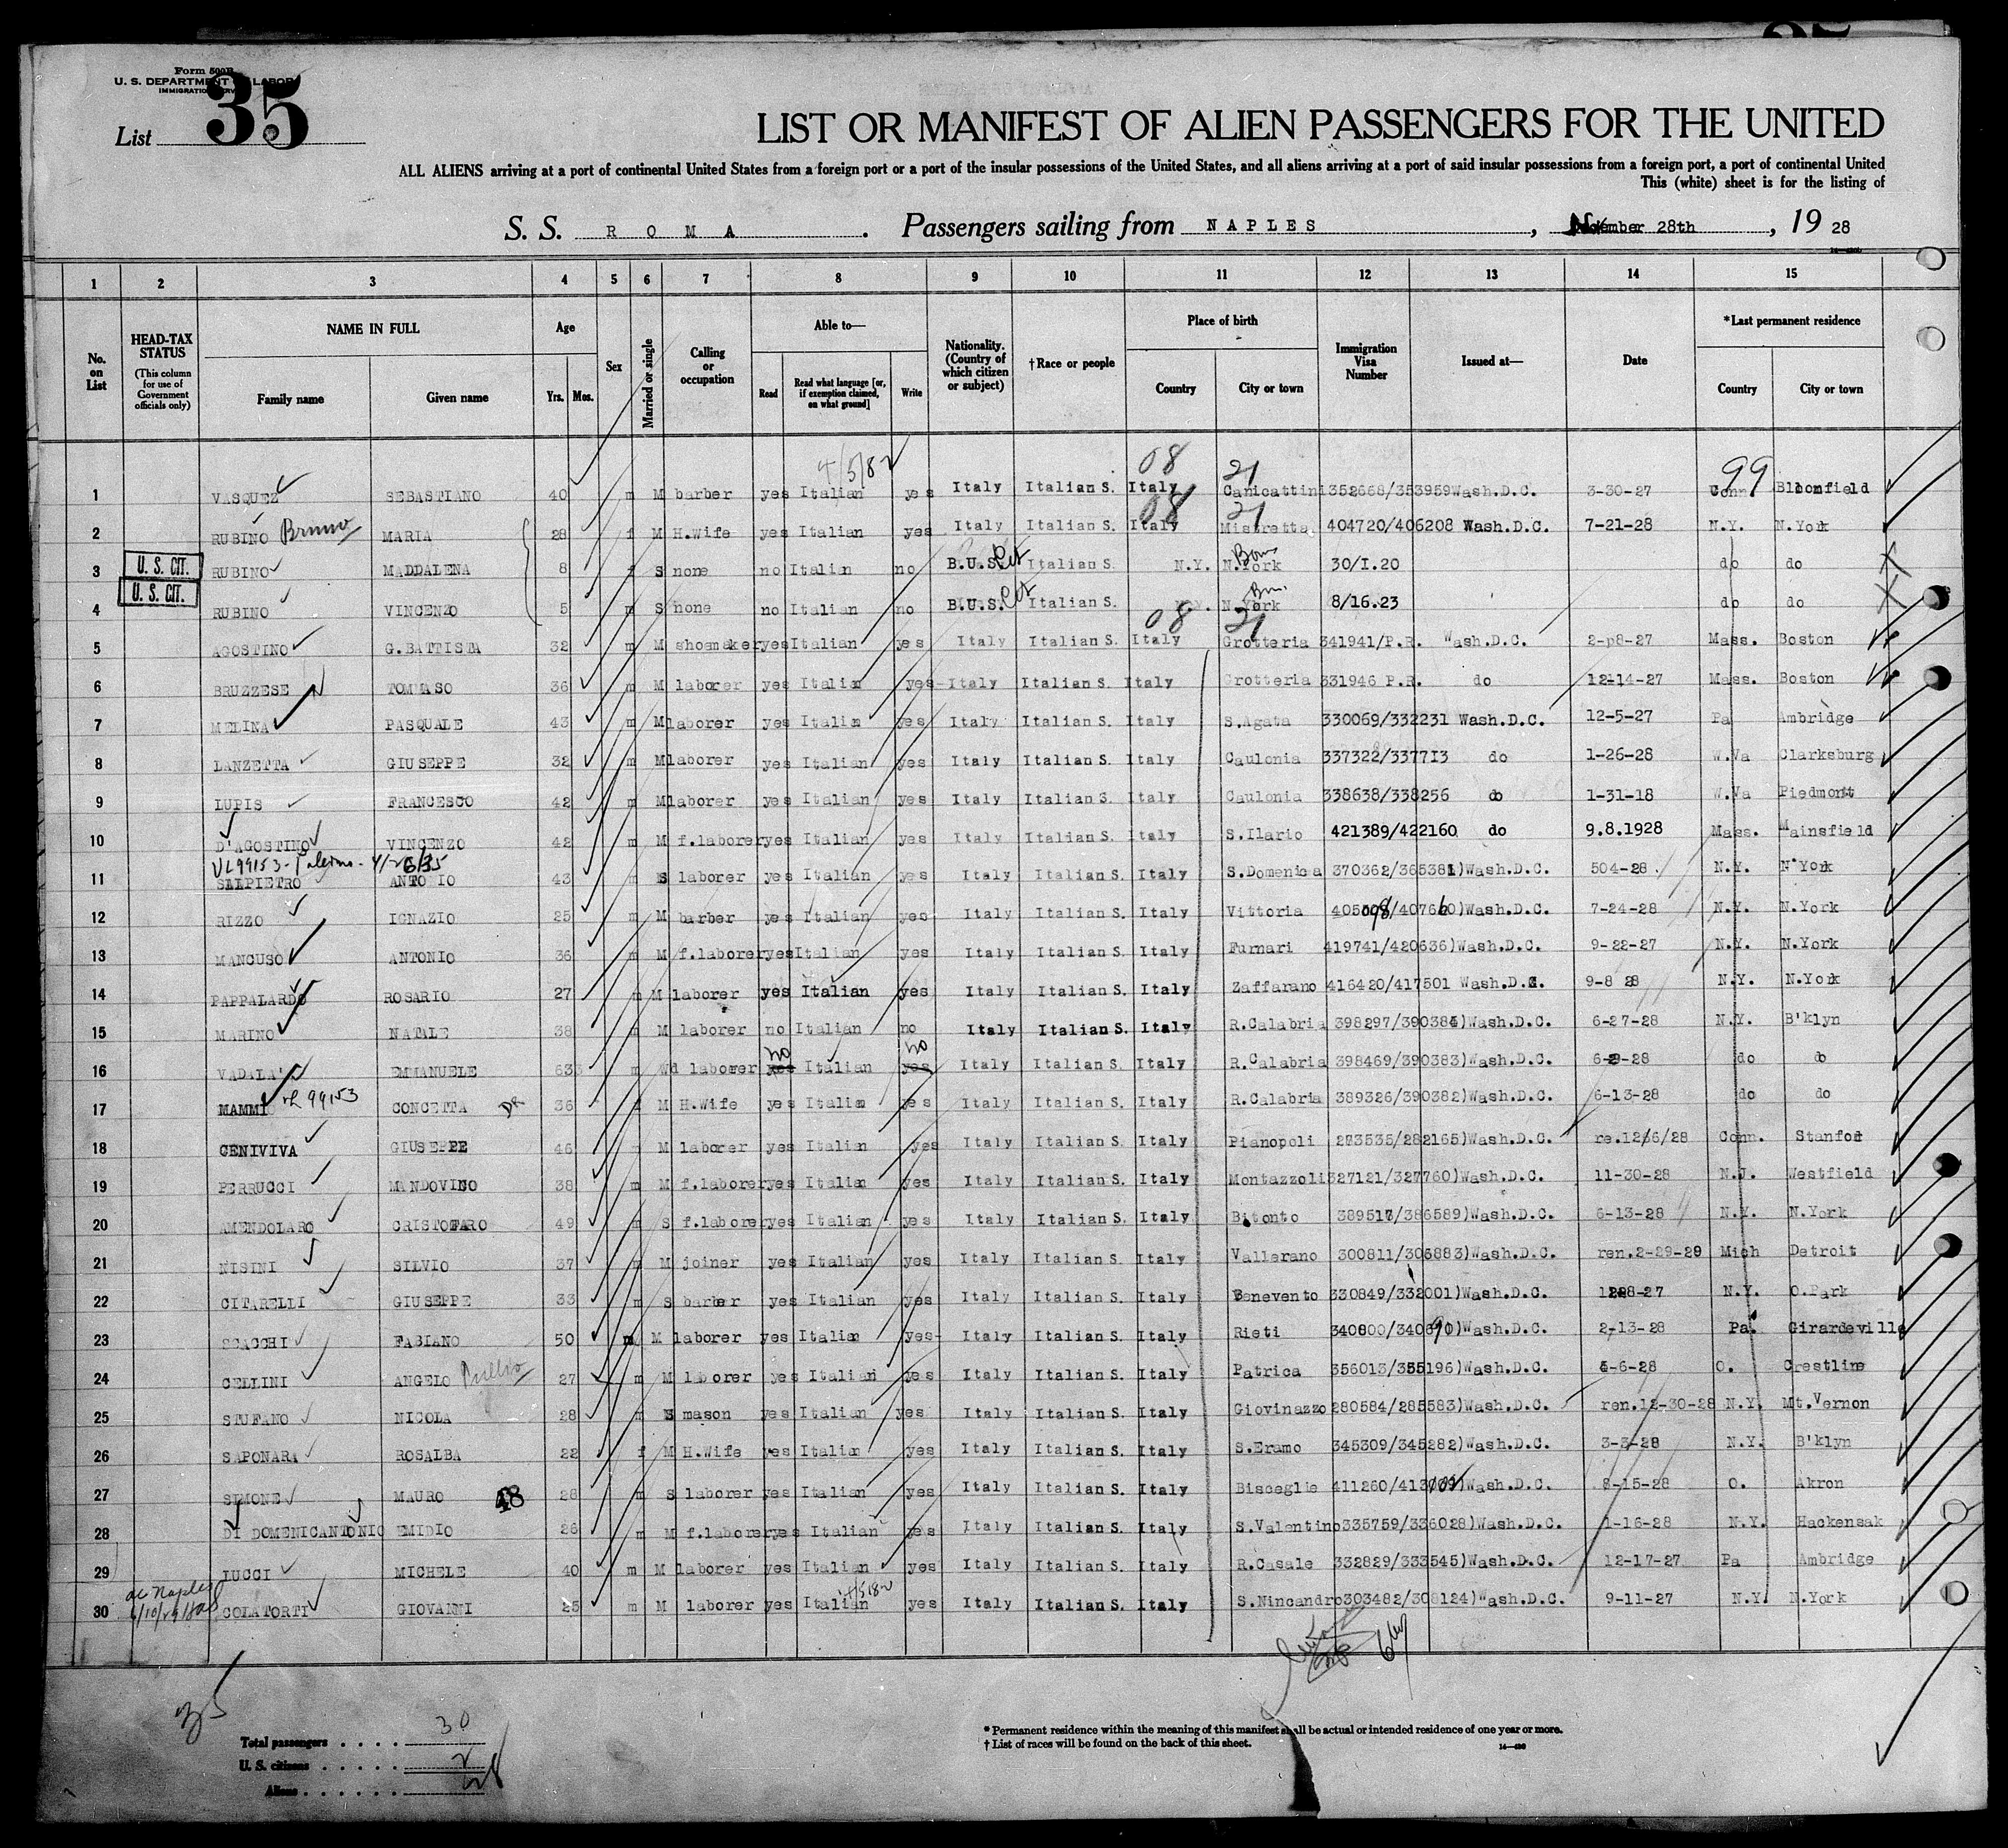 Form 500B
U. S. DEPARTMENT OF LABOR
IMMIGRATION SERVICE
List 35
LIST OR MANIFEST OF ALIEN PASSENGERS FOR THE UNITED
ALL ALIENS arriving at a port of continental United States from a foreign port or a port of the insular possessions of the United States, and all aliens arriving at a port of said insular possessions from a foreign port, a port of continental United
This (white) sheet is for the listing of
S. S. ROMA. Passengers sailing from NAPLES, 28th, 19 28
1 2 3 4 5 6 7 8 9 10 11 12 13 14 15
No. on List
HEAD-TAX STATUS (This column for use of Government officials only)
NAME IN FULL Family name Given name
Age Yrs. Mos.
Sex
Married or single
Calling or occupation
Able to— Read Read what language [or, if exemption claimed, on what ground] Write
Nationality. (Country of which citizen or subject)
†Race or people
Place of birth Country City or town
Immigration Visa Number
Issued at—
Date
*Last permanent residence Country City or town
4/5/82 08 21 99
1 VASQUEZ SEBASTIANO 40 m M barber yes Italian yes Italy Italian S. Italy Canicattini 352668/353959 Wash.D.C. 3-30-27 Conn Bloomfield
08 21
2 RUBINO Bruno MARIA 28 f M H.Wife yes Italian yes Italy Italian S. Italy Mistretta 404720/406208 Wash.D.C. 7-21-28 N.Y. N.York
3 U. S. CIT. RUBINO MADDALENA 8 f S none no Italian no B.U.S. Cit Italian S. N.Y. N.York Born 30/I.20 do do
4 U. S. CIT. RUBINO VINCENZO 5 m S none no Italian no B.U.S. Cit Italian S. N.Y. N.York 8/16.23 do do
08 21
5 AGOSTINO G.BATTISTA 32 m M shoemaker yes Italian yes Italy Italian S. Italy Grotteria 341941/P.R. Wash.D.C. 2-p8-27 Mass. Boston
6 BRUZZESE TOMMASO 36 m M laborer yes Italian yes Italy Italian S. Italy Grotteria 331946 P.R. do 12-14-27 Mass. Boston
7 MELINA PASQUALE 43 m M laborer yes Italian yes Italy Italian S. Italy S.Agata 330069/332231 Wash.D.C. 12-5-27 Pa Ambridge
8 LANZETTA GIUSEPPE 32 m M laborer yes Italian yes Italy Italian S. Italy Caulonia 337322/337713 do 1-26-28 W.Va Clarksburg
9 LUPIS FRANCESCO 42 m M laborer yes Italian yes Italy Italian S. Italy Caulonia 338638/338256 do 1-31-18 W.Va Piedmont
10 D'AGOSTINO VINCENZO 42 m M f.laborer yes Italian yes Italy Italian S. Italy S.Ilario 421389/422160 do 9.8.1928 Mass. Mainsfield
VL99153-Palermo-
11 SALPIETRO ANTONIO 43 m S laborer yes Italian yes Italy Italian S. Italy S.Domenica 370362/365381) Wash.D.C. 504-28 N.Y. N York
12 RIZZO IGNAZIO 25 m M barber yes Italian yes Italy Italian S. Italy Vittoria Wash.D.C. 7-24-28 N.Y. N.York
13 MANCUSO ANTONIO 36 m M f.laborer yes Italian yes Italy Italian S. Italy Furnari 419741/420636) Wash.D.C. 9-22-27 N.Y. N.York
14 PAPPALARDO ROSARIO 27 m M laborer yes Italian yes Italy Italian S. Italy Zaffarano 416420/417501 Wash.D.C. 9-8 28 N.Y. N.York
15 MARINO NATALE 38 m M laborer no Italian no Italy Italian S. Italy R.Calabria 398297/390384) Wash.D.C. 6-27-28 N.Y. B'klyn
no no
16 VADALA' EMMANUELE 63 m Wd laborer yes Italian yes Italy Italian S. Italy R.Calabria 398469/390383) Wash.D.C. do do
17 MAMMI VL 99153 CONCETTA 36 f M H.Wife yes Italian yes Italy Italian S. Italy R.Calabria 389326/390382) Wash.D.C. 6-13-28 do do
18 CENIVIVA GIUSEPPE 46 m M laborer yes Italian yes Italy Italian S. Italy Pianopoli 273535/282165) Wash.D.C. re.12/6/28 Conn. Stanford
19 PERRUCCI MANDOVINO 38 m M f.laborer yes Italian yes Italy Italian S. Italy Montazzoli 327121/327760) Wash.D.C. 11-30-28 N.J. Westfield
20 AMENDOLARO CRISTOFARO 49 m S f.laborer yes Italian yes Italy Italian S. Italy Bitonto 389517/386589) Wash.D.C. 6-13-28 N.Y. N.York
21 NISINI SILVIO 37 m M joiner yes Italian yes Italy Italian S. Italy Vallerano 300811/306883) Wash.D.C. ren.2-29-29 Mich Detroit
22 CITARELLI GIUSEPPE 33 m S barber yes Italian yes Italy Italian S. Italy Benevento 330849/332001) Wash.D.C. N.Y. O.Park
23 SCACCHI FABIANO 50 m M laborer yes Italian yes Italy Italian S. Italy Rieti Wash.D.C. 2-13-28 Pa. Girardeville
24 CELLINI ANGELO 27 m M laborer yes Italian yes Italy Italian S. Italy Patrica 356013/355196) Wash.D.C. O. Crestline
25 STUFANO NICOLA 28 m S mason yes Italian yes Italy Italian S. Italy Giovinazzo 280584/285583) Wash.D.C. ren.12-30-28 N.Y. Mt.Vernon
26 SAPONARA ROSALBA 22 f M H.Wife yes Italian yes Italy Italian S. Italy S.Eramo 345309/345282) Wash.D.C. 3-3-28 N.Y. B'klyn
27 SIMONE MAURO 48 28 m S laborer yes Italian yes Italy Italian S. Italy Bisceglie Wash.D.C. 8-15-28 O. Akron
28 DI DOMENICANTONIO EMIDIO 26 m M f.laborer yes Italian yes Italy Italian S. Italy S.Valentino 335759/336028) Wash.D.C. 1-16-28 N.Y. Hackensak
29 LUCCI MICHELE 40 m M laborer yes Italian yes Italy Italian S. Italy R.Casale 332829/333545) Wash.D.C. 12-17-27 Pa Ambridge
30 COLATORTI GIOVANNI 25 m M laborer yes Italian yes Italy Italian S. Italy S.Nincandro 303482/308124) Wash.D.C. 9-11-27 N.Y. N.York
35
Total passengers . . . . 30
U. S. citizens . . . . . 2
Aliens . . . . . . 28
* Permanent residence within the meaning of this manifest shall be actual or intended residence of one year or more.
† List of races will be found on the back of this sheet.